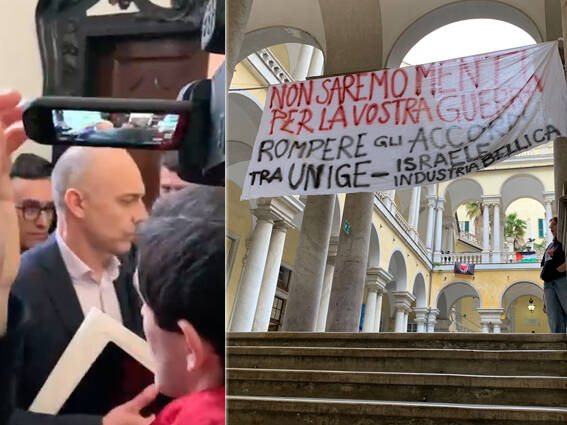 NON SAREMO MENTI
PER LA VOSTRA GUERRA
ROMPERE GLI ACCORDI
TRA UNIGE- ISRAELE
INDUSTRIA BELLICA